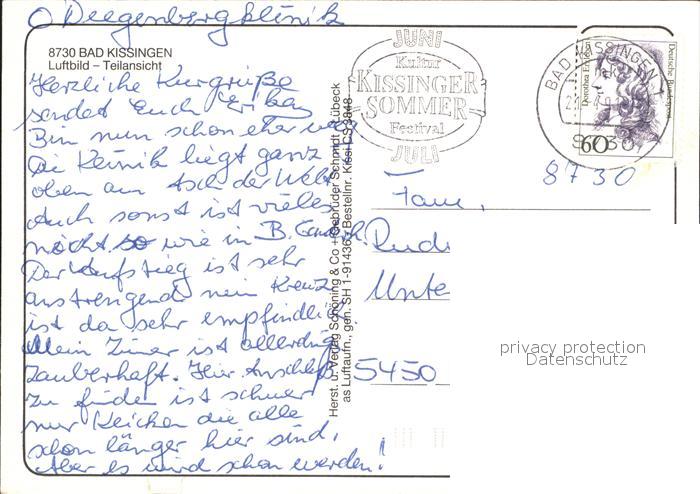 O Deegenbergklinik
8730 BAD KISSINGEN
Luftbild – Teilansicht
Herzliche Kurgrüße
sendet Euch
Bin nun schon eher weg
Die Klinik liegt ganz
oben am Arsch der Welt
Auch sonst ist vieles
nicht so wie in B.
Der Aufstieg ist sehr
anstrengend mein Kreuz
ist da sehr empfindlich
Mein Zimer ist allerdings
zauberhaft. Hier Anschluß
zu finden ist schwer
nur Cliquen die alle
schon länger hier sind.
Aber es wird schon werden!
JUNI
Kultur
KISSINGER
SOMMER
Festival
JULI
BAD KISSINGEN
8730
Deutsche Bundespost
Dorothea
60
Herst. u. Verlag Schöning & Co + Gebrüder Schmidt, Lübeck
as Luftaufn., gen. SH 1-91436 Bestellnr. Kissi LS 3848
8730
Fam.
Rudi
Unte
5450
privacy protection
Datenschutz